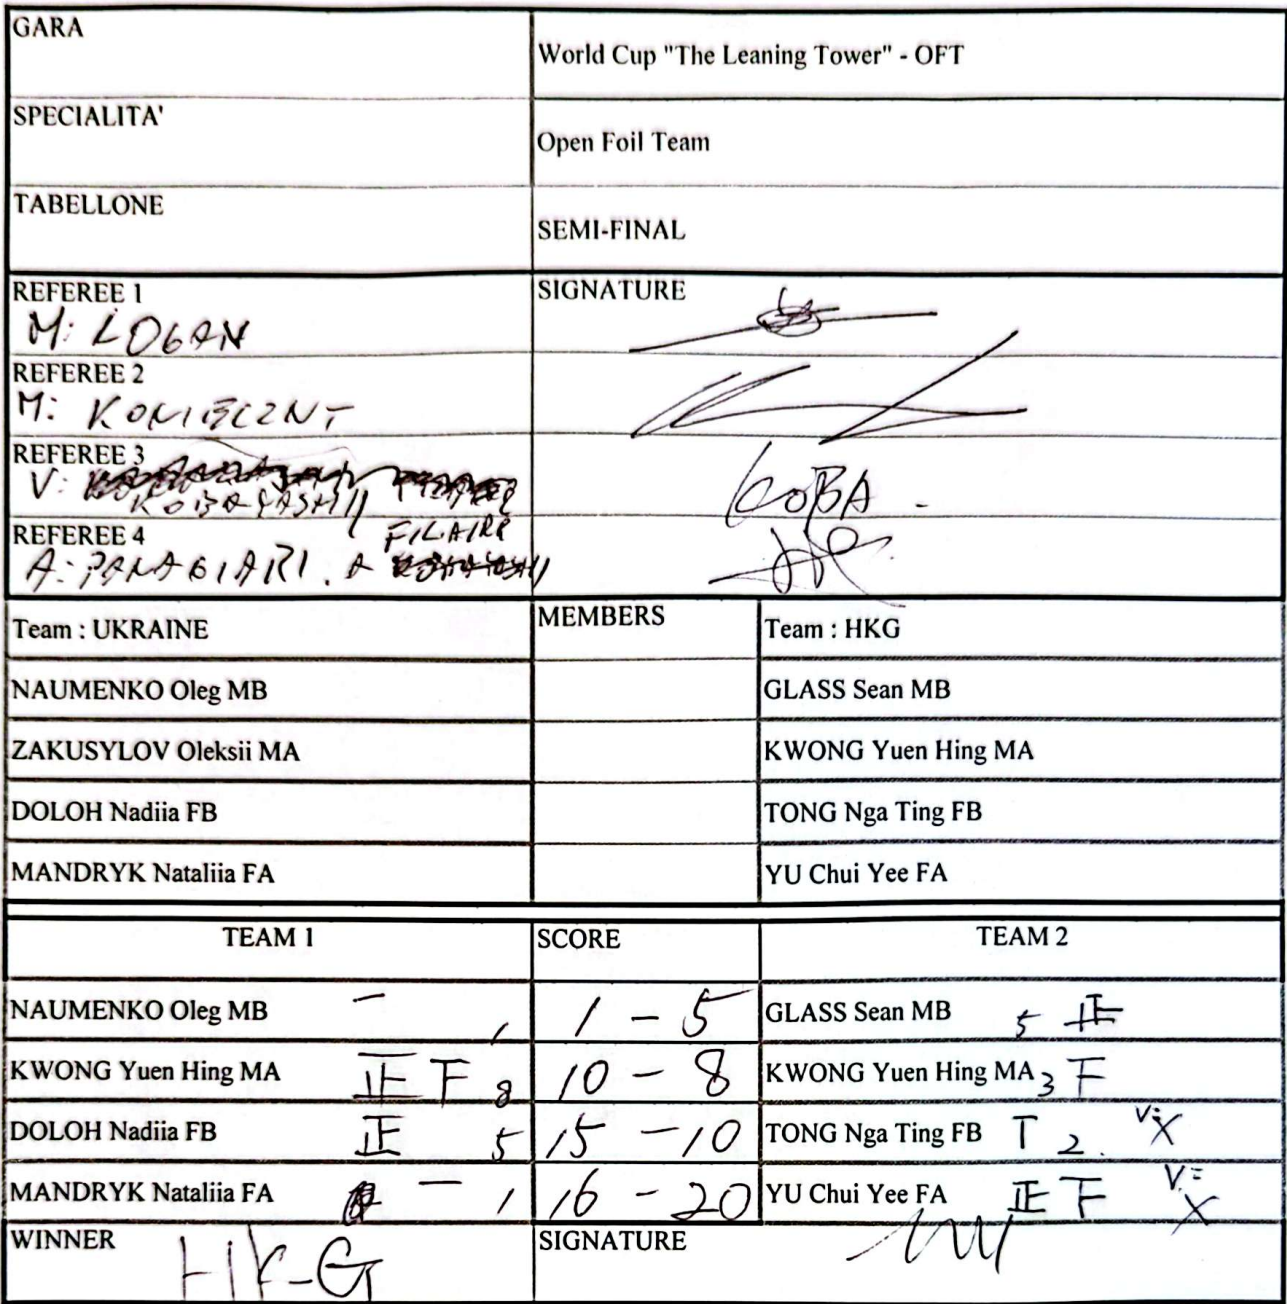 GARA
World Cup "The Leaning Tower" - OFT
SPECIALITA'
Open Foil Team
TABELLONE
SEMI-FINAL
REFEREE 1 SIGNATURE
M: LOGAN
REFEREE 2
M: KONIECZNY
REFEREE 3
V: KOBAYASHI
KOBA
REFEREE 4 FILAIRE
A: PANAGIARI. A
Team : UKRAINE MEMBERS Team : HKG
NAUMENKO Oleg MB GLASS Sean MB
ZAKUSYLOV Oleksii MA KWONG Yuen Hing MA
DOLOH Nadiia FB TONG Nga Ting FB
MANDRYK Nataliia FA YU Chui Yee FA
TEAM 1 SCORE TEAM 2
NAUMENKO Oleg MB 一 1 1 - 5 GLASS Sean MB 5 正
KWONG Yuen Hing MA 正 下 8 10 - 8 KWONG Yuen Hing MA 3 下
DOLOH Nadiia FB 正 5 15 - 10 TONG Nga Ting FB T 2. V: X
MANDRYK Nataliia FA 一 1 16 - 20 YU Chui Yee FA 正 下 V: X
WINNER HKG SIGNATURE